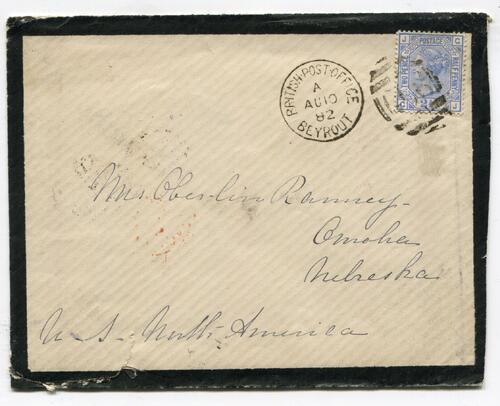 BRITISH·POST·OFFICE
A
AU 10
82
BEYROUT
J G
POSTAGE
G J
Mrs Oberlin Ranney-
Omaha
Nebreska
U S - North America